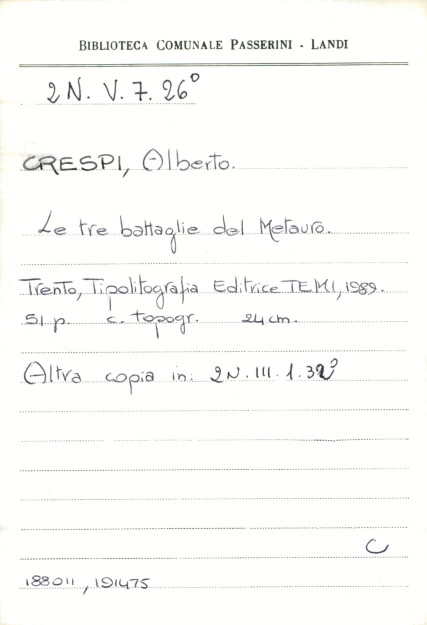 BIBLIOTECA COMUNALE PASSERINI - LANDI
2 N. V. 7. 26°
CRESPI, Alberto.
Le tre battaglie del Metauro.
Trento, Tipolitografia Editrice TEMI, 1989.
51 p. c. topogr. 24 cm.
Altra copia in: 2 N. III. 1. 32°
C
188011, 191475